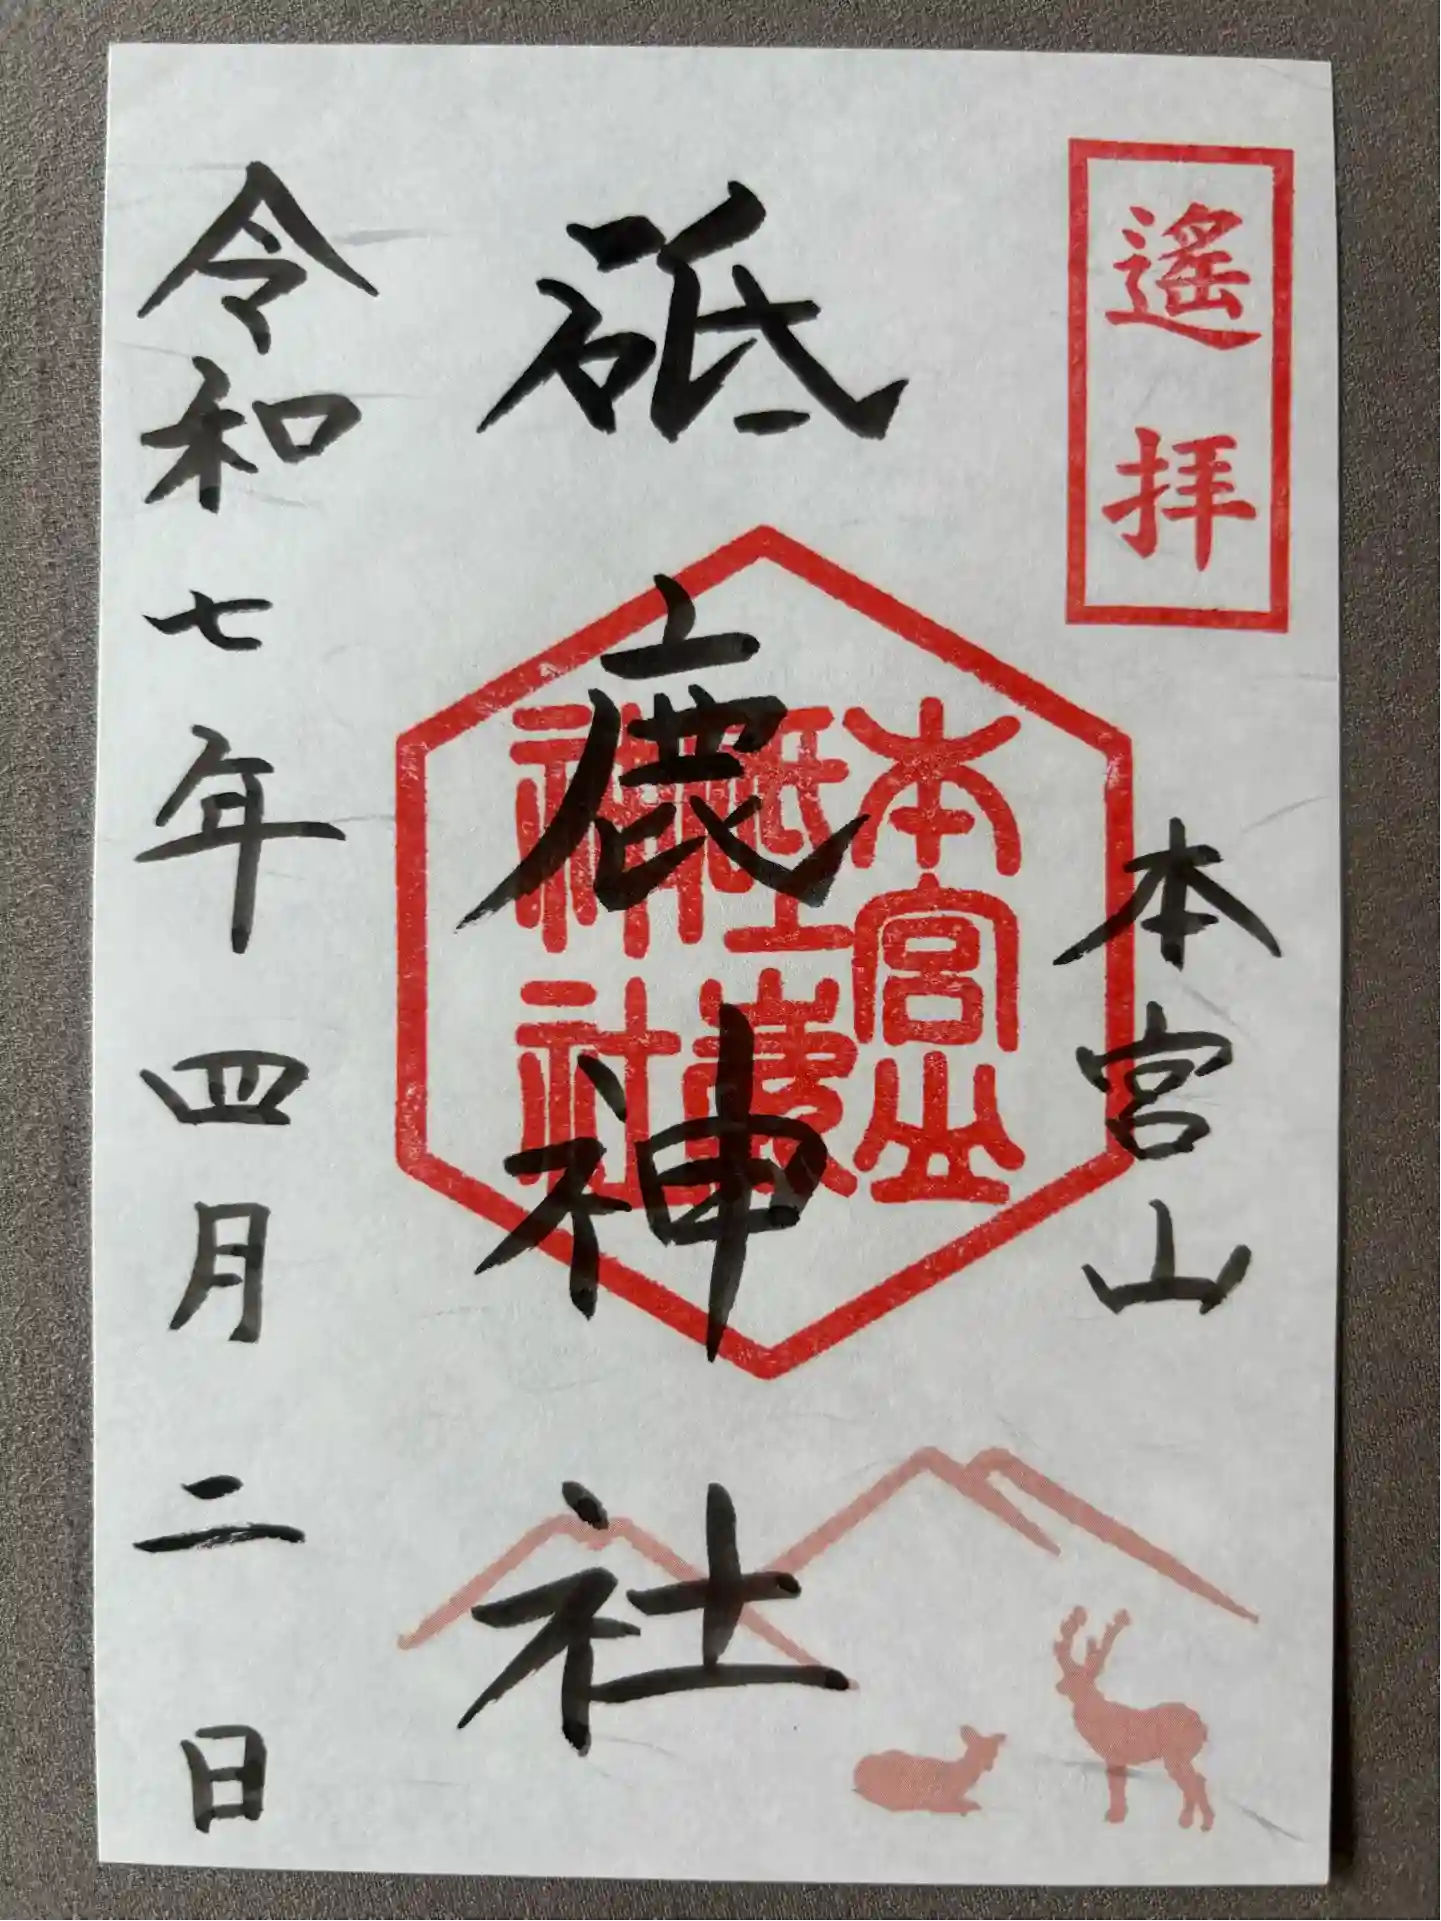 遙拝
本宮山
砥鹿神社
本宮山
砥鹿
神社
令和七年四月二日